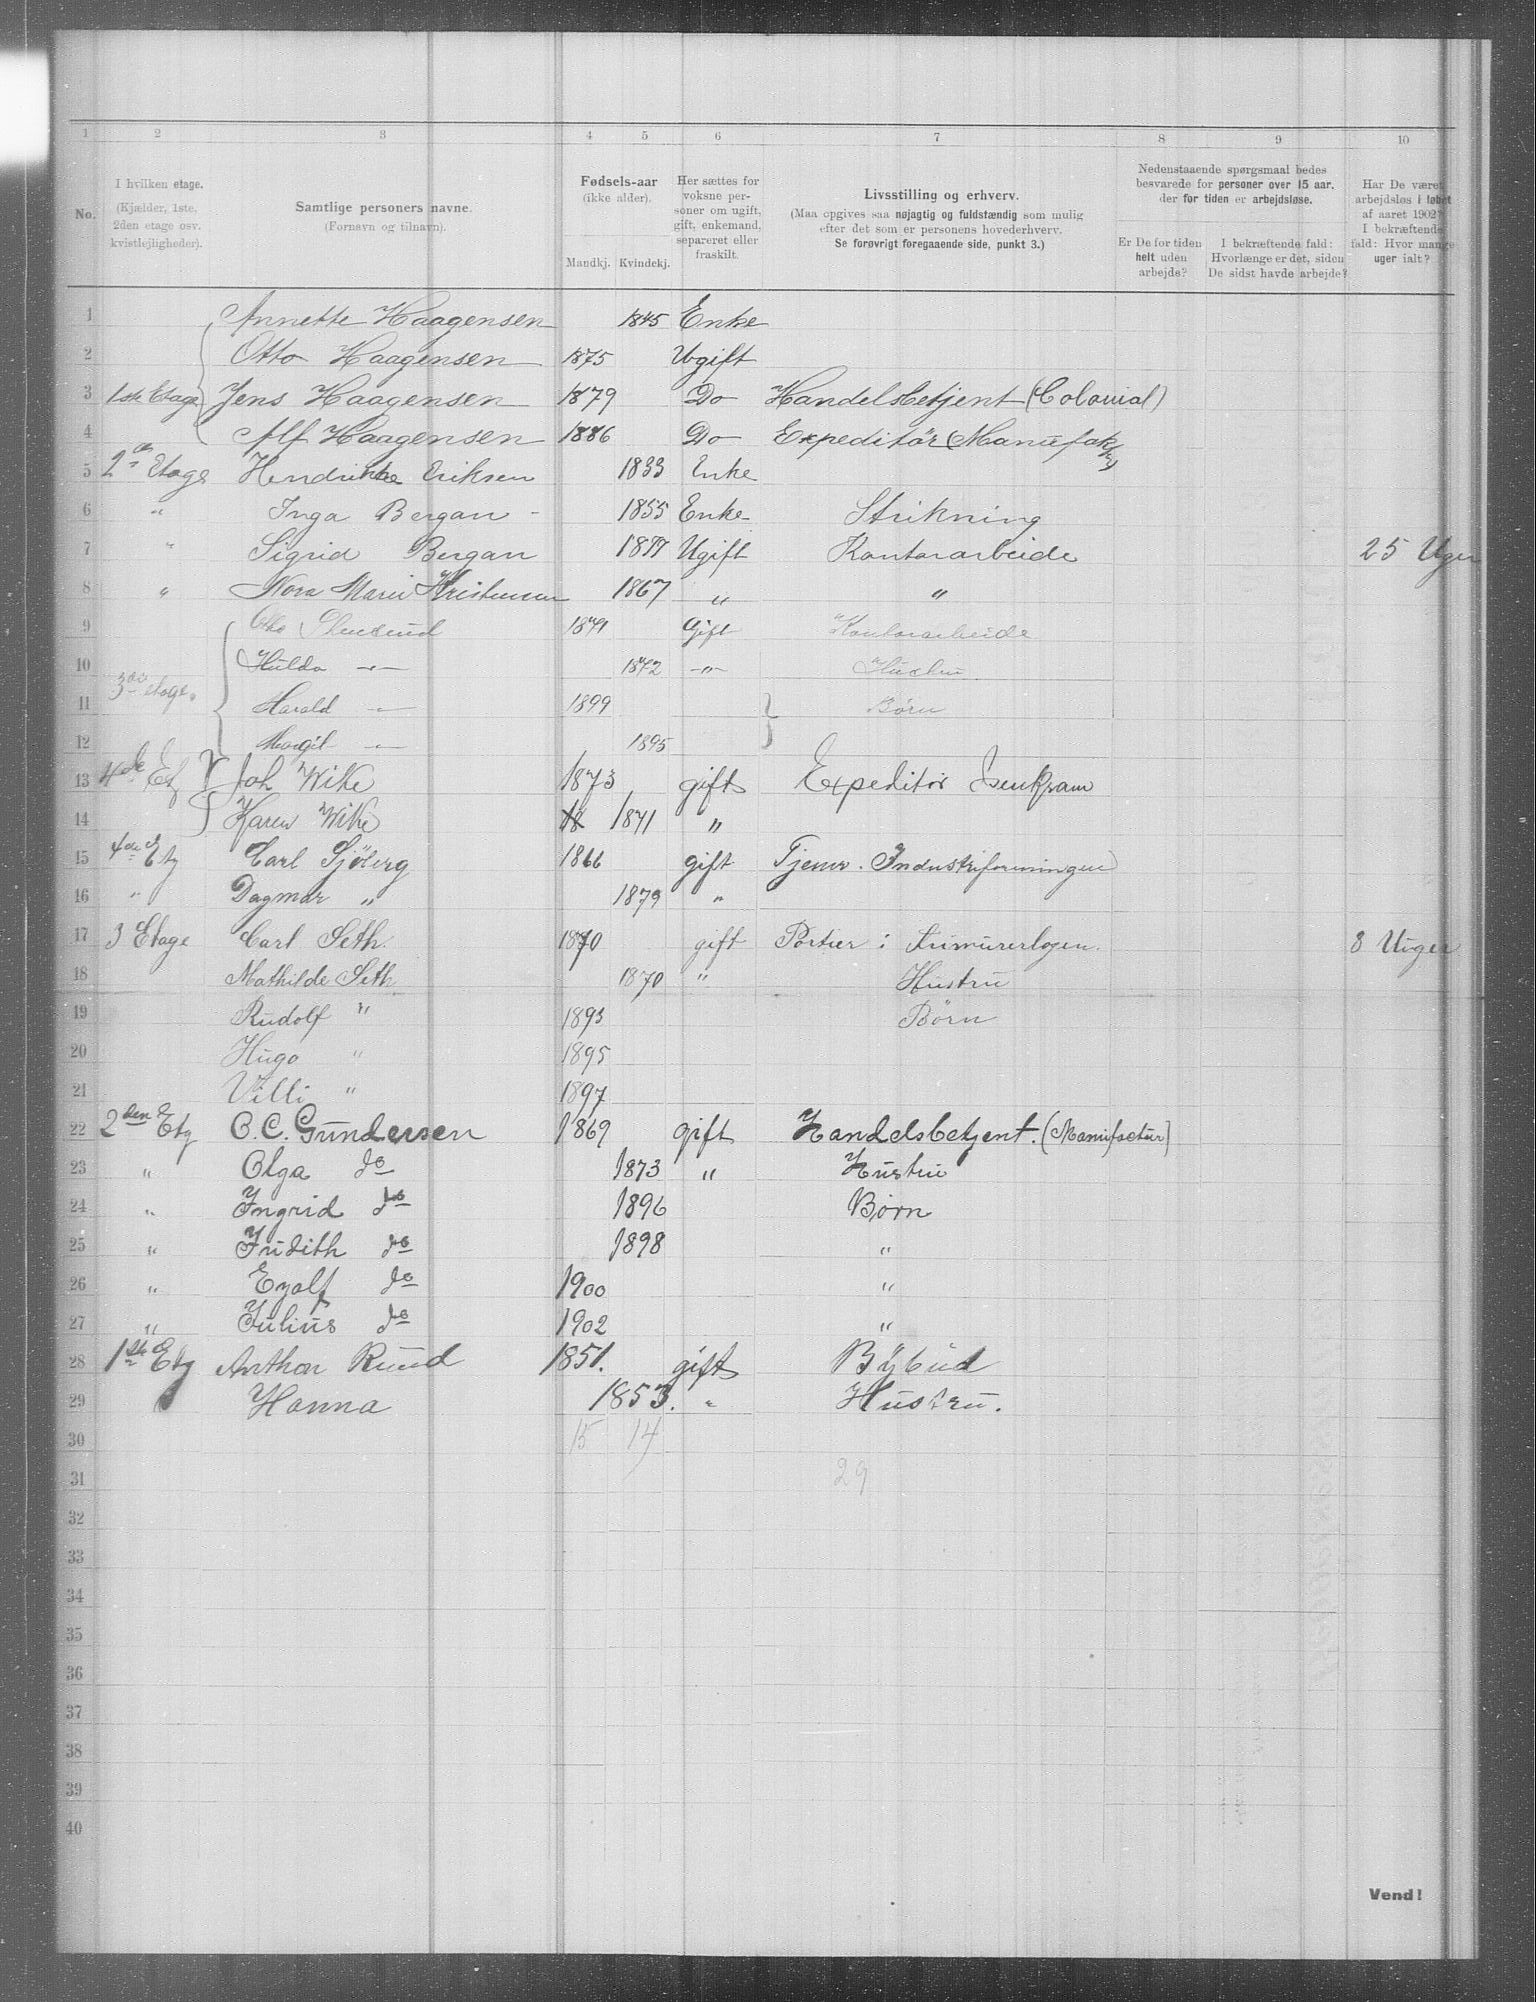 1 2 3 4 5 6 7 8 9 10
No.
I hvilken etage.
(Kjælder, 1ste.
2den etage osv.
kvistlejligheder).
Samtlige personers navne.
(Fornavn og tilnavn).
Fødsels-aar
(ikke alder).
Mandkj. Kvindekj.
Her sættes for
voksne per-
soner om ugift,
gift, enkemand,
separeret eller
fraskilt.
Livsstilling og erhverv.
(Maa opgives saa nøjagtig og fuldstændig som mulig
efter det som er personens hovederhverv.
Se forøvrigt foregaaende side, punkt 3.)
Nedenstaaende spørgsmaal bedes
besvarede for personer over 15 aar.
der for tiden er arbejdsløse.
Er De for tiden
helt uden
arbejde?
I bekræftende fald:
Hvorlænge er det, siden
De sidst havde arbejde?
Har De været
arbejdsløs i løbet
af aaret 1902?
I bekræftende
fald: Hvor mange
uger ialt?
1 Annette Haagensen 1845 Enke
2 Otto Haagensen 1875 Ugift
3 1ste Etage Jens Haagensen 1879 Do Handelsbetjent (Colonial)
4 Alf Haagensen 1886 Do Expeditör (Manufak
5 2 Etage Hendrikke Eriksen 1833 Enke
6 " Inga Bergan - 1855 Enke Strikning
7 " Sigrid Bergan 1877 Ugift Kontorarbeide 25 Uger
8 " Nora Marie Kristensen 1867 " "
9 Otto 1871 Gift Kontorarbeide
10 Hulda -"- 1872 -"- Hustru
11 3die etage. Harald -"- 1899 Børn
12 Margit -"- 1895
13 4de Etg Joh Wike 1873 gift Expeditör Isenkram
14 Karen Wike 18 1871 "
15 4de Etg Carl Sjöberg 1866 gift Tjener. Industriforeningen
16 " Dagmar " 1879 "
17 3 Etage Carl Seth. 1870 gift Portier i Frimurerlogen. 8 Uger
18 Mathilde Seth 1870 " Hustru
19 Rudolf " 1893 Børn
20 Hugo " 1895
21 Villi " 1897
22 2den Etg O. C. Gundersen 1869 gift Handelsbetjent. (Manufactur)
23 " Olga do 1873 " Hustru
24 " Ingrid do 1896 Børn
25 " Judith do 1898 "
26 " Eyolf do 1900 "
27 " Julius do 1902 "
28 1ste Etg Anthon Ruud 1851. gift Bybud
29 Hanna 1853. " Hustru.
30 15 14
31 29
32
33
34
35
36
37
38
39
40
Vend!